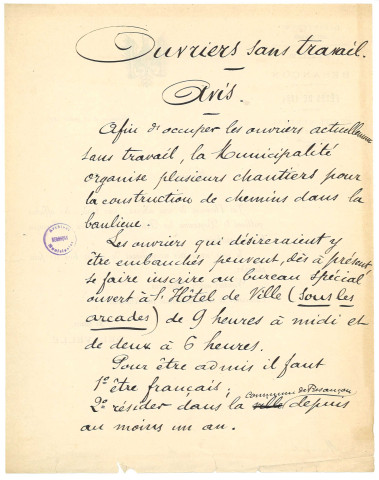 Ouvriers sans travail.
Avis.
Afin d'occuper les ouvriers actuellement
sans travail, la Municipalité
organise plusieurs chantiers pour
la construction de chemins dans la
banlieue.
Les ouvriers qui désireraient y
être embauchés peuvent, dès à présent
se faire inscrire au bureau spécial
ouvert à l'Hôtel de Ville (sous les
arcades) de 9 heures à midi et
de deux à 6 heures.
Pour être admis il faut
1º être français;
2º résider dans la ville commune de Besançon depuis
au moins un an.